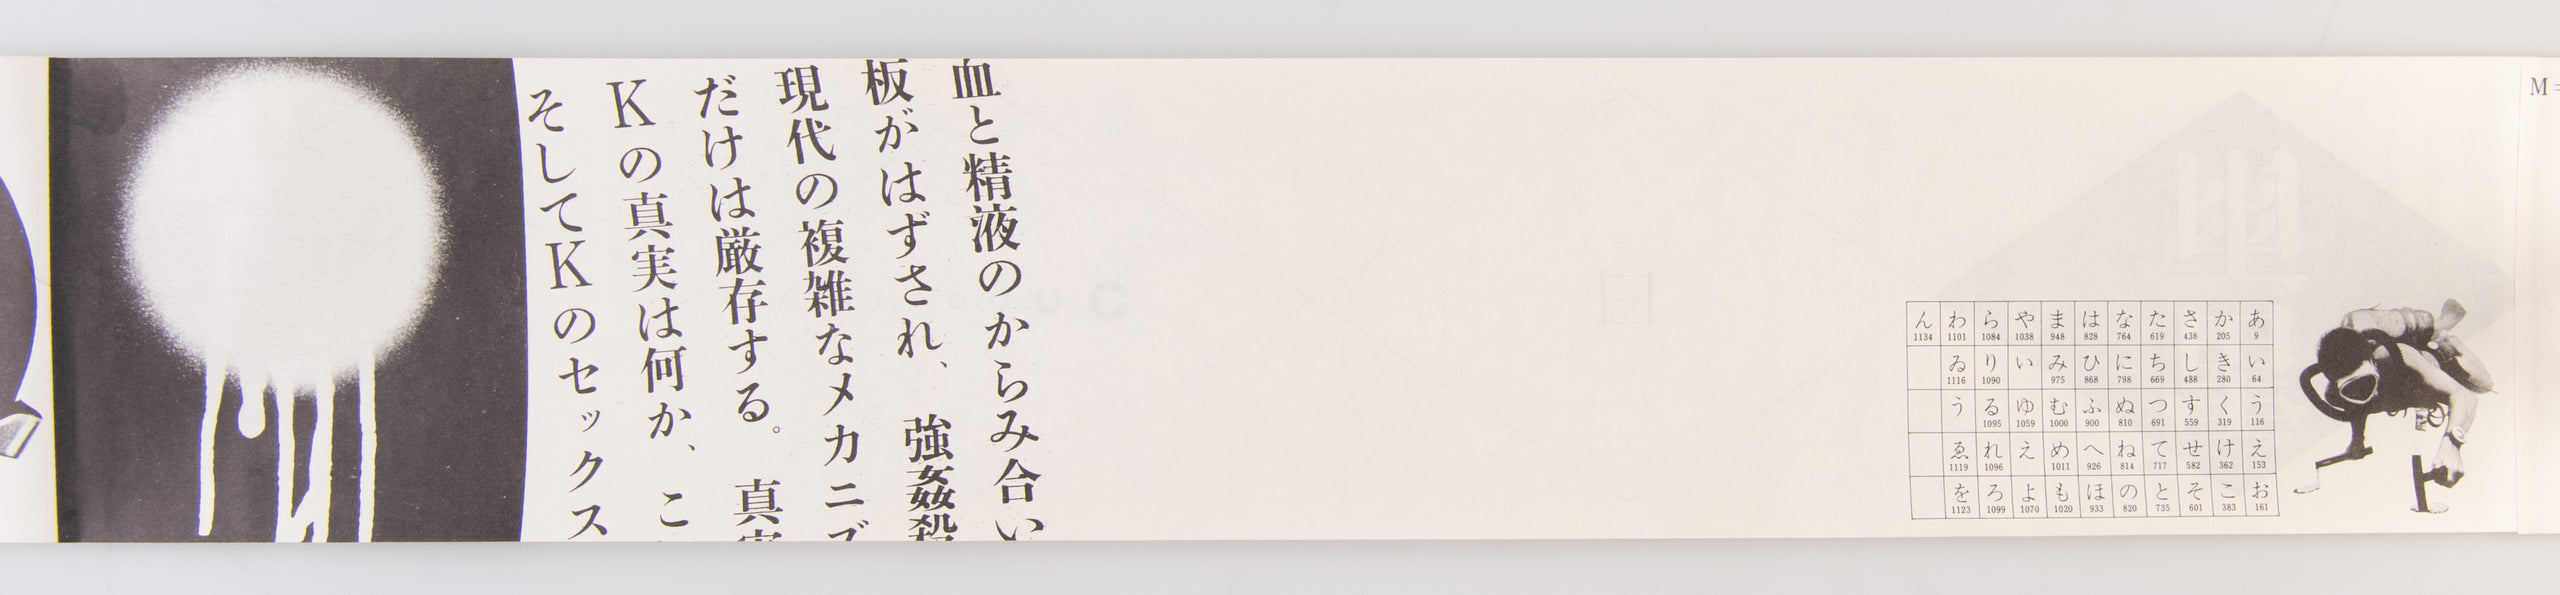 M=
あ か さ た な は ま や ら わ ん
9 205 438 619 764 828 948 1038 1084 1101 1134
い き し ち に ひ み い り ゐ
64 280 488 669 798 868 975 1090 1116
う く す つ ぬ ふ む ゆ る う
116 319 559 691 810 900 1000 1059 1095
え け せ て ね へ め え れ ゑ
153 362 582 717 814 926 1011 1096 1119
お こ そ と の ほ も よ ろ を
161 383 601 735 820 933 1020 1070 1099 1123
血と精液のからみ合い
板がはずされ、強姦殺
現代の複雑なメカニズ
だけは厳存する。真実
Kの真実は何か、こ
そしてKのセックス